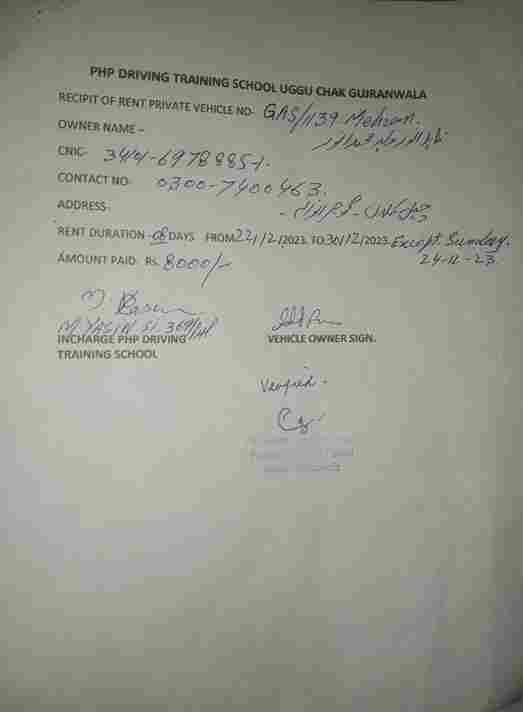 PHP DRIVING TRAINING SCHOOL UGGU CHAK GUJRANWALA
RECIPIT OF RENT PRIVATE VEHICLE NO- GAS/1139 Mehran.
OWNER NAME –
CNIC- 344-6978885-1.
CONTACT NO- 0300-7400463.
ADDRESS-
RENT DURATION -08 DAYS FROM 22/12/2023. TO 30/12/2023. Except Sunday.
24-12-23
AMOUNT PAID: RS. 8000/-
M. YASIN SI 369/HP
INCHARGE PHP DRIVING
TRAINING SCHOOL
VEHICLE OWNER SIGN.
Verified -